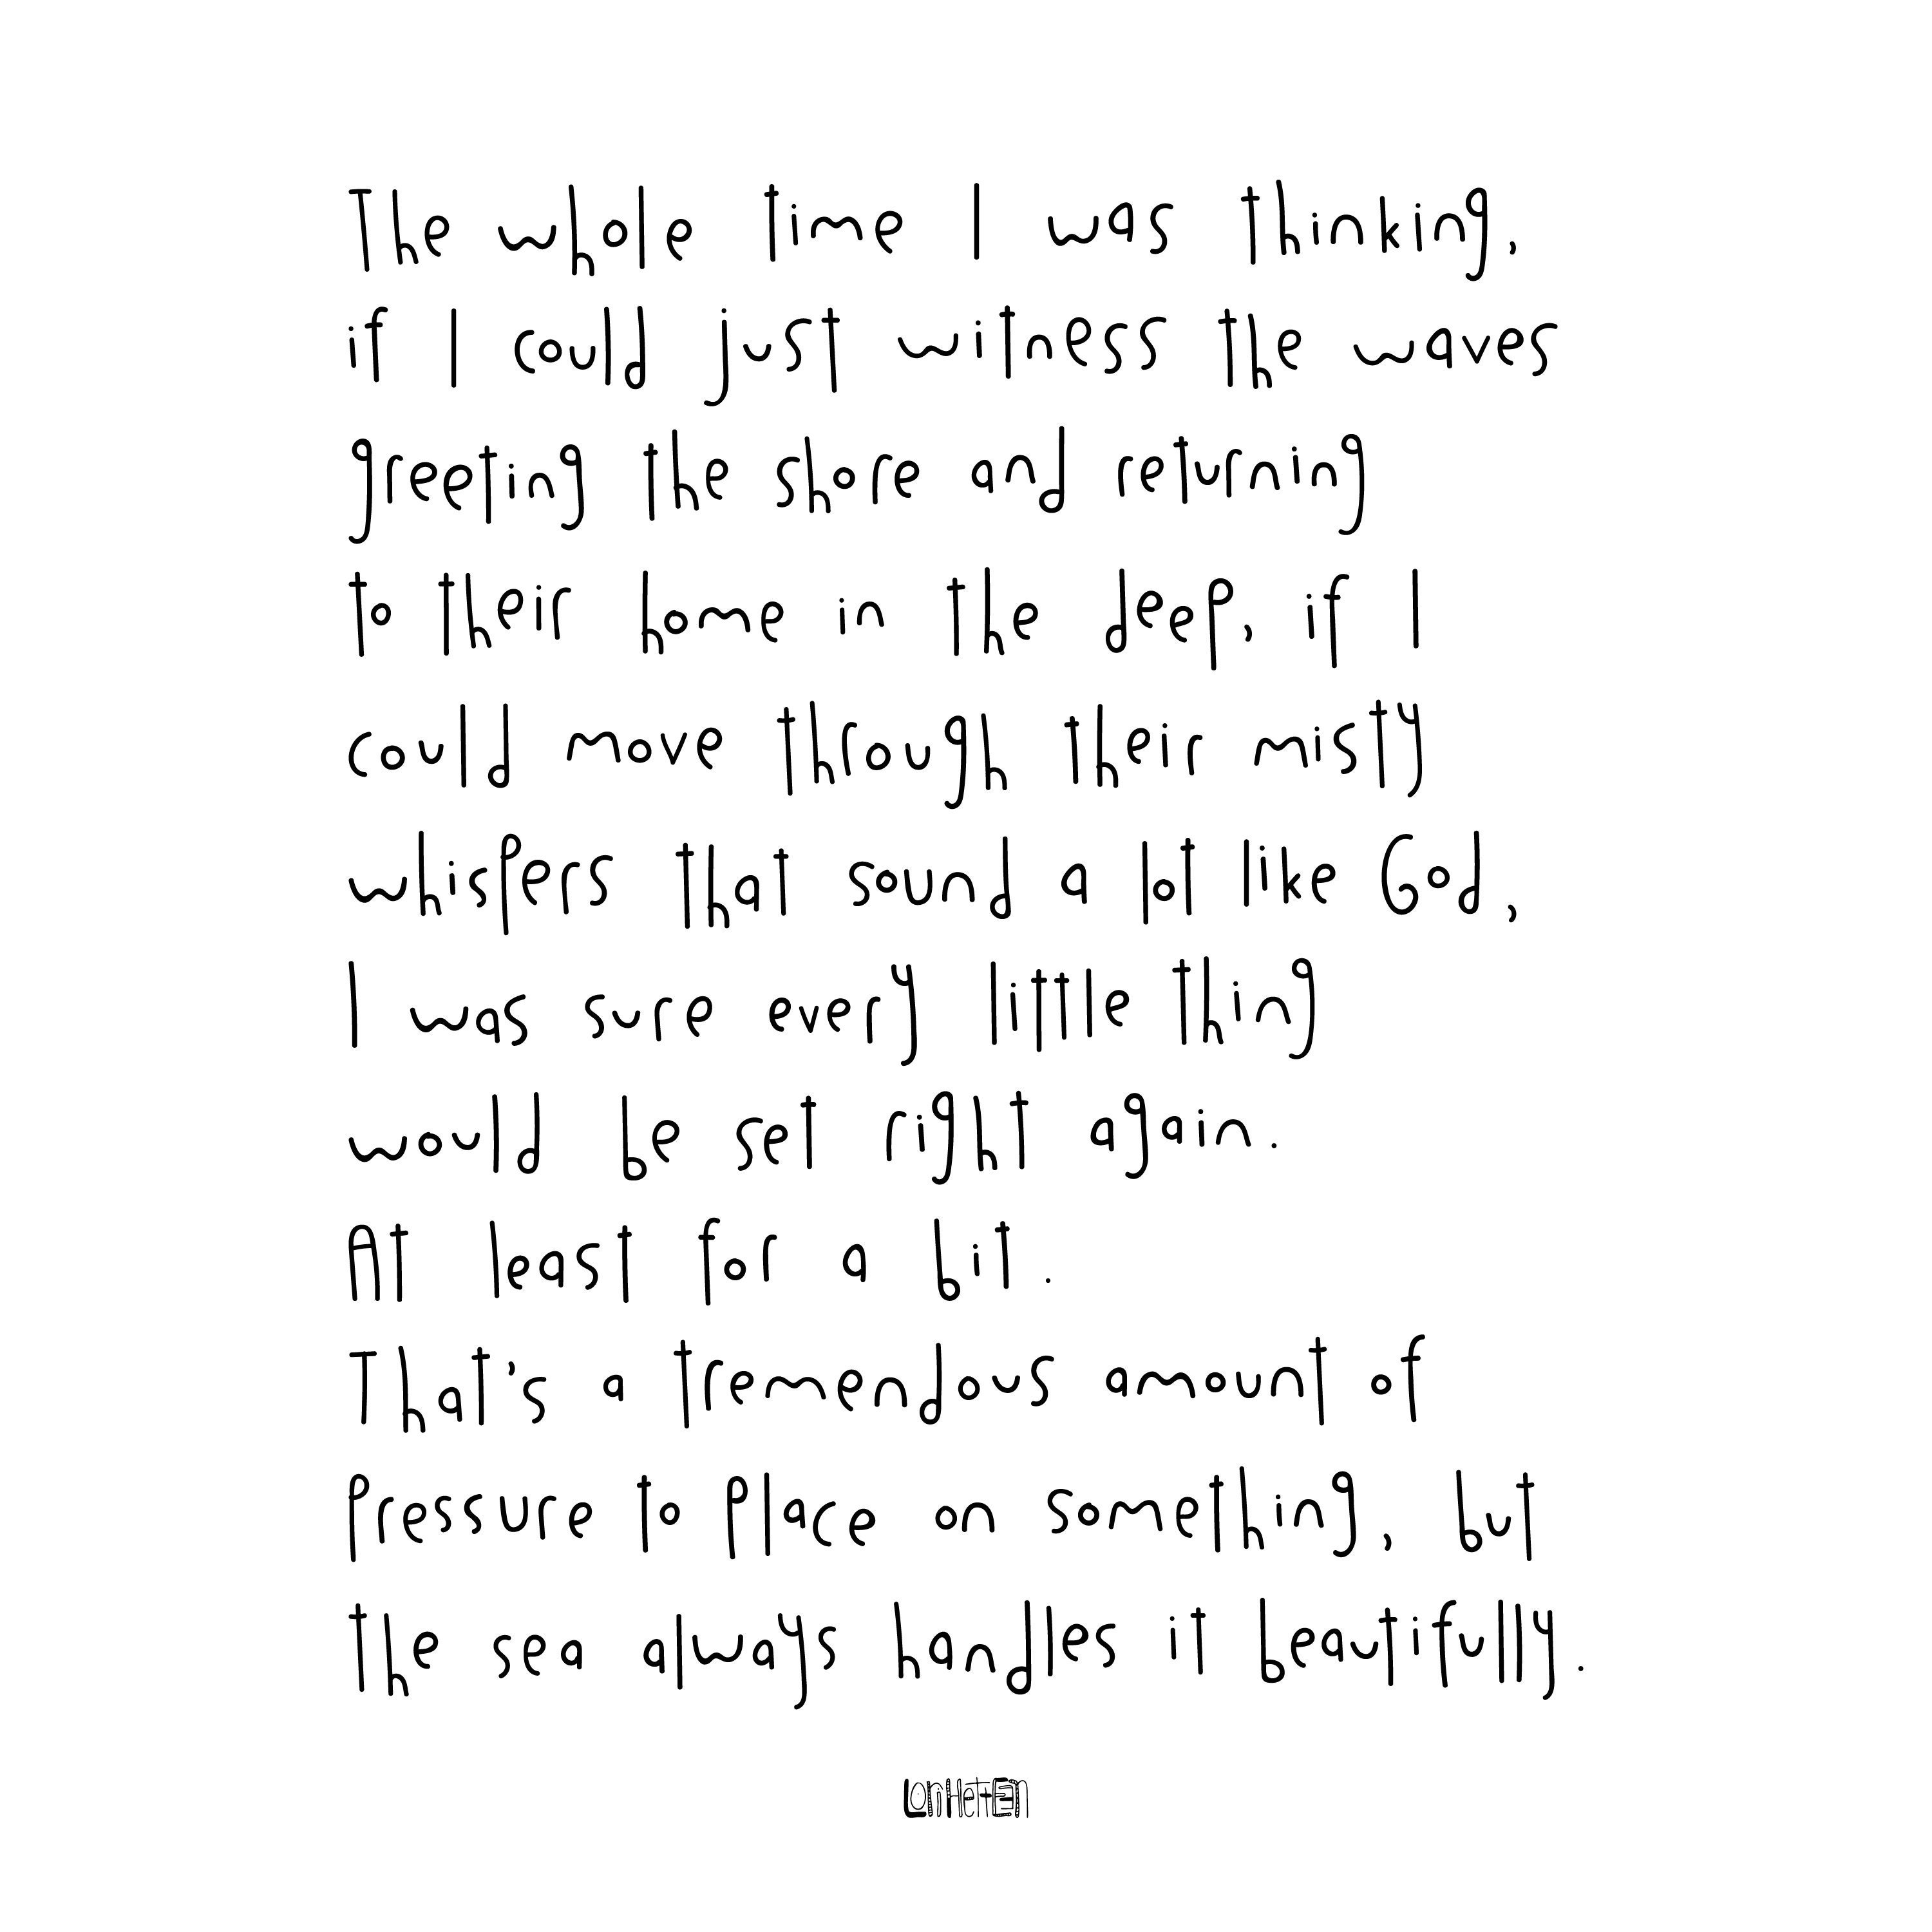 The whole time I was thinking,
if I could just witness the waves
greeting the shore and returning
to their home in the deep, if I
could move through their misty
whispers that sound a lot like God,
I was sure every little thing
would be set right again.
At least for a bit.
That's a tremendous amount of
pressure to place on something, but
the sea always handles it beautifully.
LoriHetteen